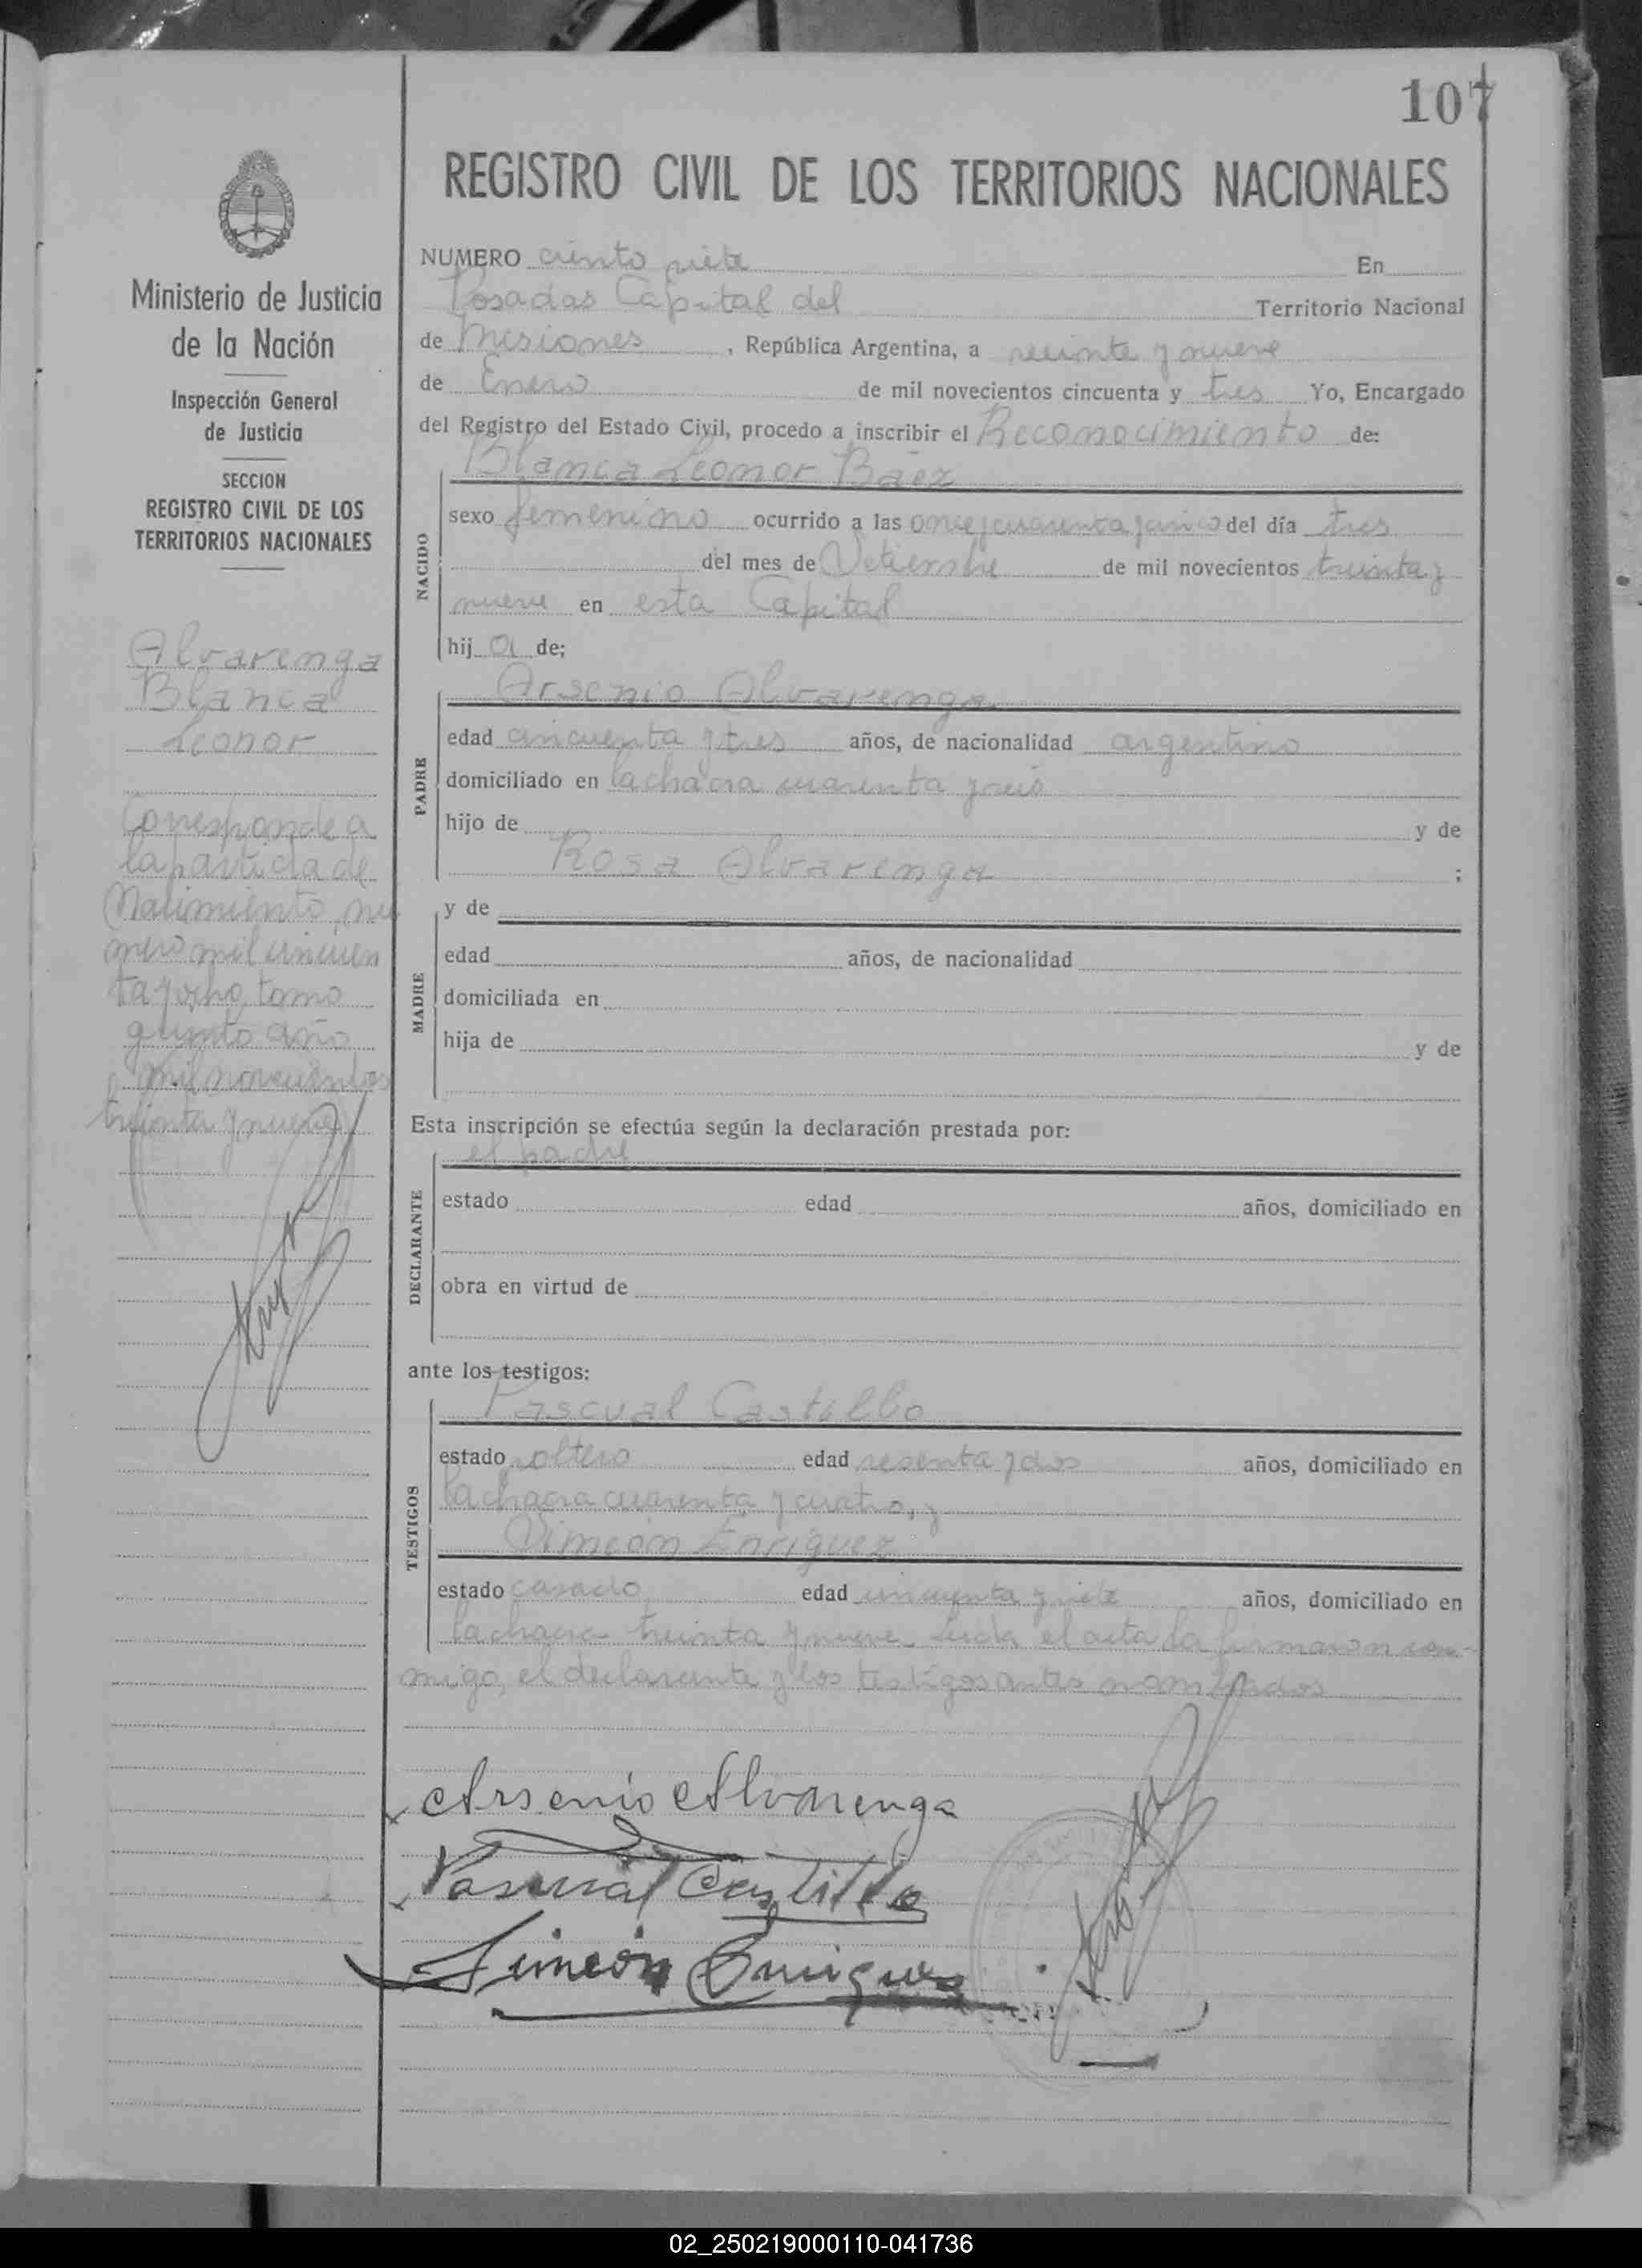 107
REGISTRO CIVIL DE LOS TERRITORIOS NACIONALES
Ministerio de Justicia
de la Nación
Inspección General
de Justicia
SECCION
REGISTRO CIVIL DE LOS
TERRITORIOS NACIONALES
Alvarenga
Blanca
Leonor
Corresponde a
la partida de
Nacimiento nu
mero mil cincuen
ta y ocho, tomo
quinto año
mil novecientos
treinta y nueve
NUMERO ciento siete En
Posadas Capital del Territorio Nacional
de Misiones, República Argentina, a veinte y nueve
de Enero de mil novecientos cincuenta y tres Yo, Encargado
del Registro del Estado Civil, procedo a inscribir el Reconocimiento de:
Blanca Leonor Báez
NACIDO
sexo femenino ocurrido a las once y cuarenta y cinco del día tres
del mes de Setiembre de mil novecientos treinta y
nueve en esta Capital
hija de;
PADRE
Arsenio Alvarenga
edad cincuenta y tres años, de nacionalidad argentino
domiciliado en la chacra cuarenta y seis
hijo de y de
Rosa Alvarenga ;
MADRE
y de
edad años, de nacionalidad
domiciliada en
hija de y de
Esta inscripción se efectúa según la declaración prestada por:
el padre
DECLARANTE
estado edad años, domiciliado en
obra en virtud de
ante los testigos:
TESTIGOS
Pascual Castillo
estado soltero edad sesenta y dos años, domiciliado en
la chacra cuarenta y cuatro, y
Simeón Enriquez
estado casado edad cincuenta y siete años, domiciliado en
la chacra treinta y nueve. Leida el acta la firmaron con-
migo, el declarante y los testigos antes nombrados
Arsenio Alvarenga
Pascual Castillo
Simeón Enriquez
02_250219000110-041736